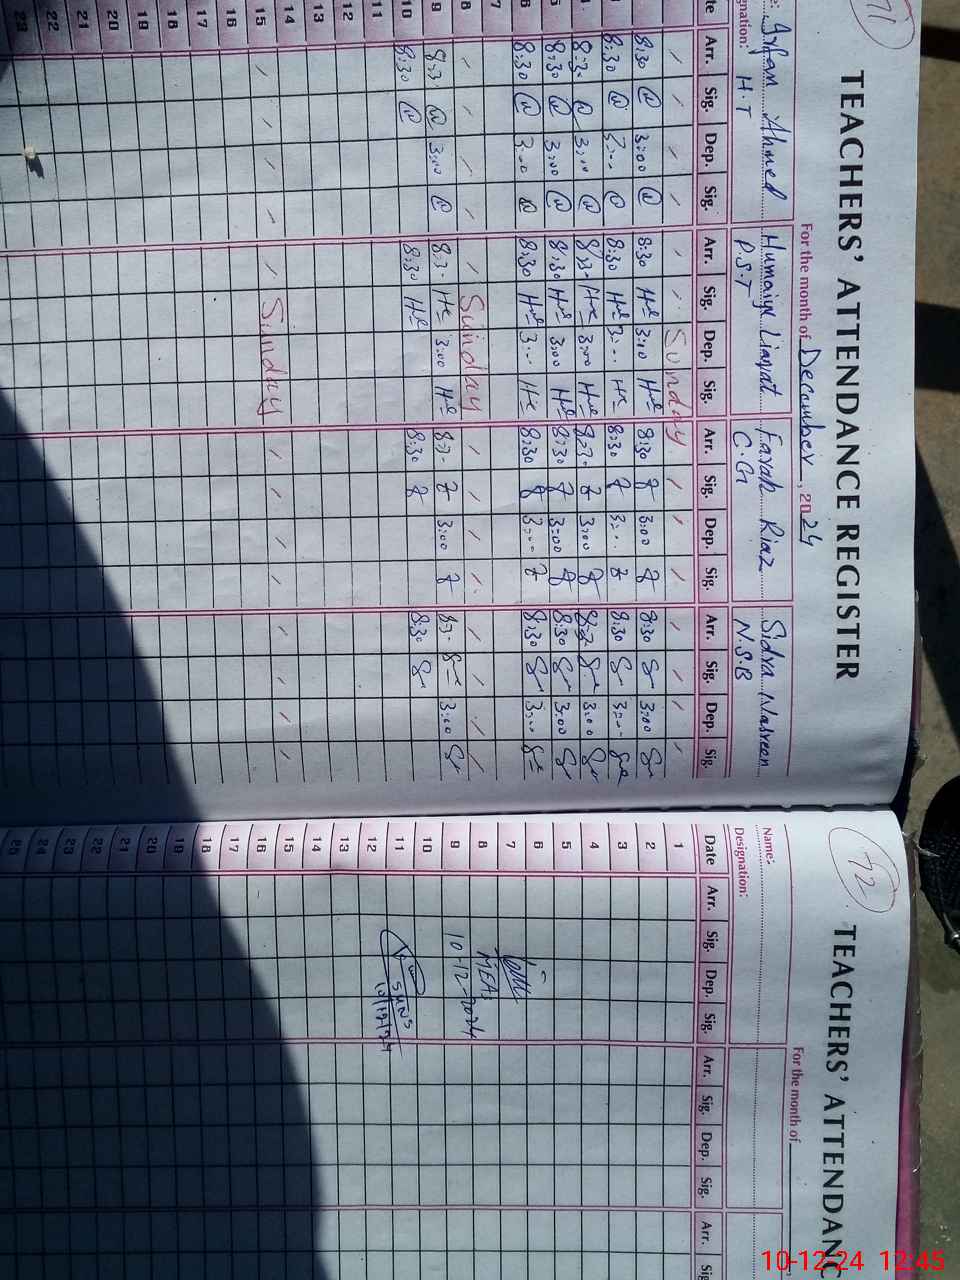 71
TEACHERS' ATTENDANCE REGISTER
For the month of December, 2024
Irfan Ahmed Humaiya Liaqat Farah Riaz Sidra Nasreen
gnation: H.T P.S.T C.G N.S.B
te Arr. Sig. Dep. Sig. Arr. Sig. Dep. Sig. Arr. Sig. Dep. Sig. Arr. Sig. Dep. Sig.
Sunday
8:30 3:00 8:30 3:00 8:30 3:00 8:30 3:00
8:30 3:00 8:30 3:00 8:30 3:00 8:30 3:00
4 8:30 3:00 8:30 3:00 8:30 3:00 8:30 3:00
5 8:30 3:00 8:30 3:00 8:30 3:00 8:30 3:00
6 8:30 3:00 8:30 3:00 8:30 3:00 8:30 3:00
7
8 Sunday
9 8:30 3:00 8:30 3:00 8:30 3:00 8:30 3:00
10 8:30 8:30 8:30 8:30
11
12
13
14
15 Sunday
16
17
18
19
20
21
22
23
72
TEACHERS' ATTENDANC
For the month of
Name:
Designation:
Date Arr. Sig. Dep. Sig. Arr. Sig. Dep. Sig. Arr.
1
2
3
4
5
6
7
8 MEA
9 10-12-2024
10
11
12
13
14
15
16
17
18
19
20
21
22
23
24
25
10/12/24
10-12-24 12:45